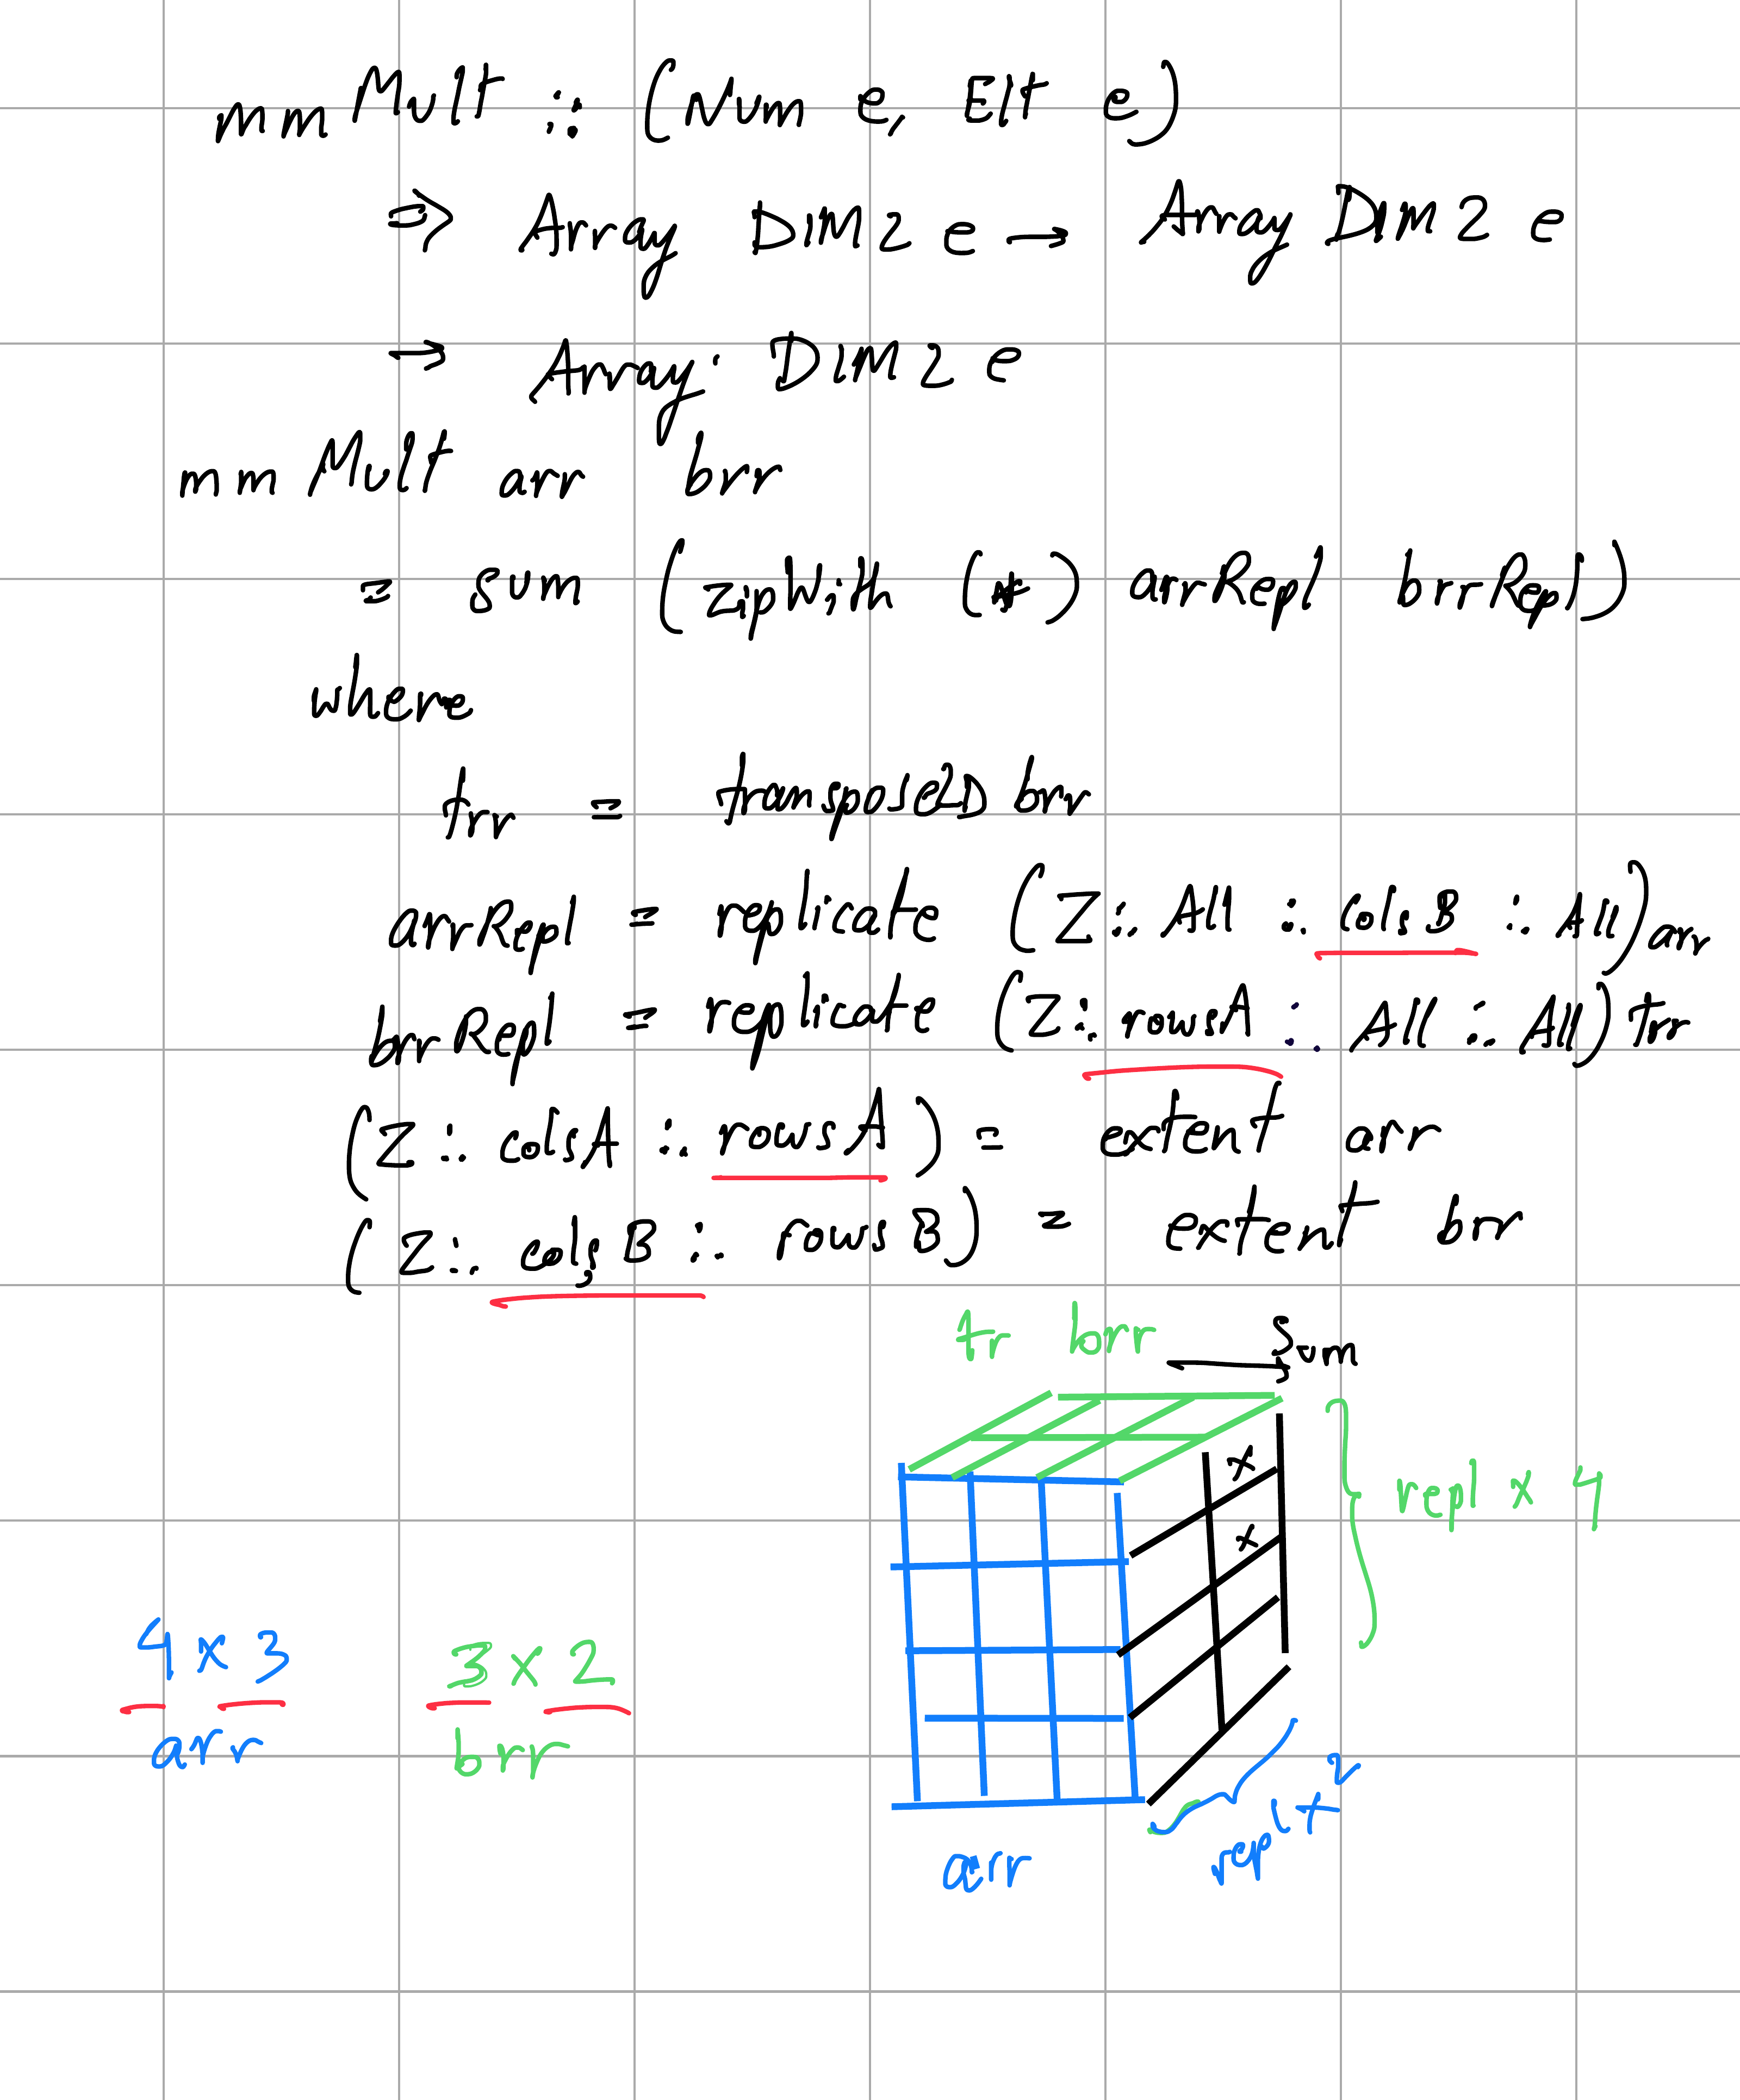 mmMult :: (Num e, Elt e)
⇒ Array DIM2 e → Array DIM2 e
→ Array DIM2 e
mmMult arr brr
= sum (zipWith (*) arrRepl brrRepl)
where
trr = transpose2D brr
arrRepl = replicate (Z :. All :. colsB :. All) arr
brrRepl = replicate (Z :. rowsA :. All :. All) trr
(Z :. colsA :. rowsA) = extent arr
(Z :. colsB :. rowsB) = extent brr
tr brr
Sum
x
x
repl x 4
4 x 3
arr
3 x 2
brr
arr
repl x 2